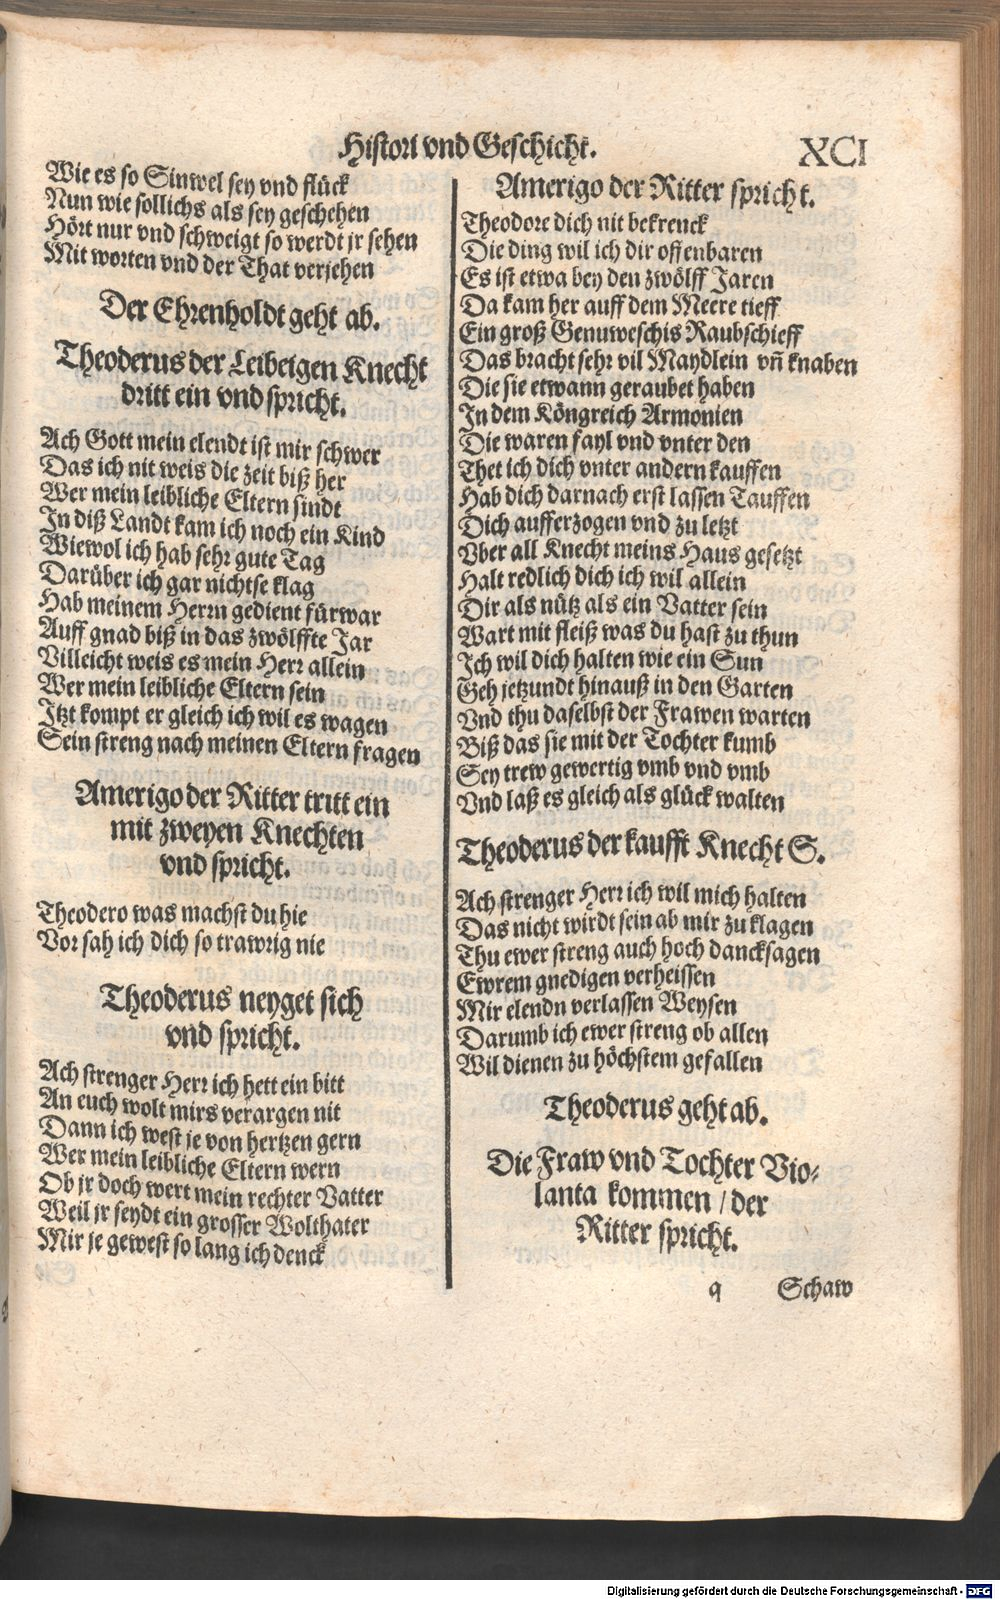 Histori vnd Geschicht.
XCI
Wie es so Sinwel sey vnd flück
Nun wie sollichs als sey geschehen
Hört nur vnd schweigt so werdt jr sehen
Mit worten vnd der That verjehen
Der Ehrenholdt geht ab.
Theoderus der Leibeigen Knecht
dritt ein vnd spricht.
Ach Gott mein elendt ist mir schwer
Das ich nit weis die zeit biß her
Wer mein leibliche Eltern sindt
In diß Landt kam ich noch ein Kind
Wiewol ich hab sehr gute Tag
Darüber ich gar nichtse klag
Hab meinem Herrn gedient fürwar
Auff gnad biß in das zwölffte Jar
Villeicht weis es mein Herr allein
Wer mein leibliche Eltern sein
Jtzt kompt er gleich ich wil es wagen
Sein streng nach meinen Eltern fragen
Amerigo der Ritter tritt ein
mit zweyen Knechten
vnd spricht.
Theodero was machst du hie
Vor sah ich dich so trawrig nie
Theoderus neyget sich
vnd spricht.
Ach strenger Herr ich hett ein bitt
An euch wolt mirs verargen nit
Dann ich west je von hertzen gern
Wer mein leibliche Eltern wern
Ob jr doch wert mein rechter Vatter
Weil jr seydt ein grosser Wolthater
Mir je gewest so lang ich denck
Amerigo der Ritter spricht.
Theodore dich nit bekrenck
Die ding wil ich dir offenbaren
Es ist etwa bey den zwölff Jaren
Da kam her auff dem Meere tieff
Ein groß Genuweschis Raubschieff
Das bracht sehr vil Maydlein vñ knaben
Die sie etwann geraubet haben
In dem Köngreich Armonien
Die waren fayl vnd vnter den
Thet ich dich vnter andern kauffen
Hab dich darnach erst lassen Tauffen
Dich aufferzogen vnd zu letzt
Vber all Knecht meins Haus gesetzt
Halt redlich dich ich wil allein
Dir als nütz als ein Vatter sein
Wart mit fleiß was du hast zu thun
Ich wil dich halten wie ein Sun
Geh jetzundt hinauß in den Garten
Vnd thu daselbst der Frawen warten
Biß das sie mit der Tochter kumb
Sey trew gewertig vmb vnd vmb
Vnd laß es gleich als glück walten
Theoderus der kaufft Knecht S.
Ach strenger Herr ich wil mich halten
Das nicht wirdt sein ab mir zu klagen
Thu ewer streng auch hoch dancksagen
Ewrem gnedigen verheissen
Mir elendn verlassen Weysen
Darumb ich ewer streng ob allen
Wil dienen zu höchstem gefallen
Theoderus geht ab.
Die Fraw vnd Tochter Vio-
lanta kommen / der
Ritter spricht.
q
Schaw
Digitalisierung gefördert durch die Deutsche Forschungsgemeinschaft - DFG